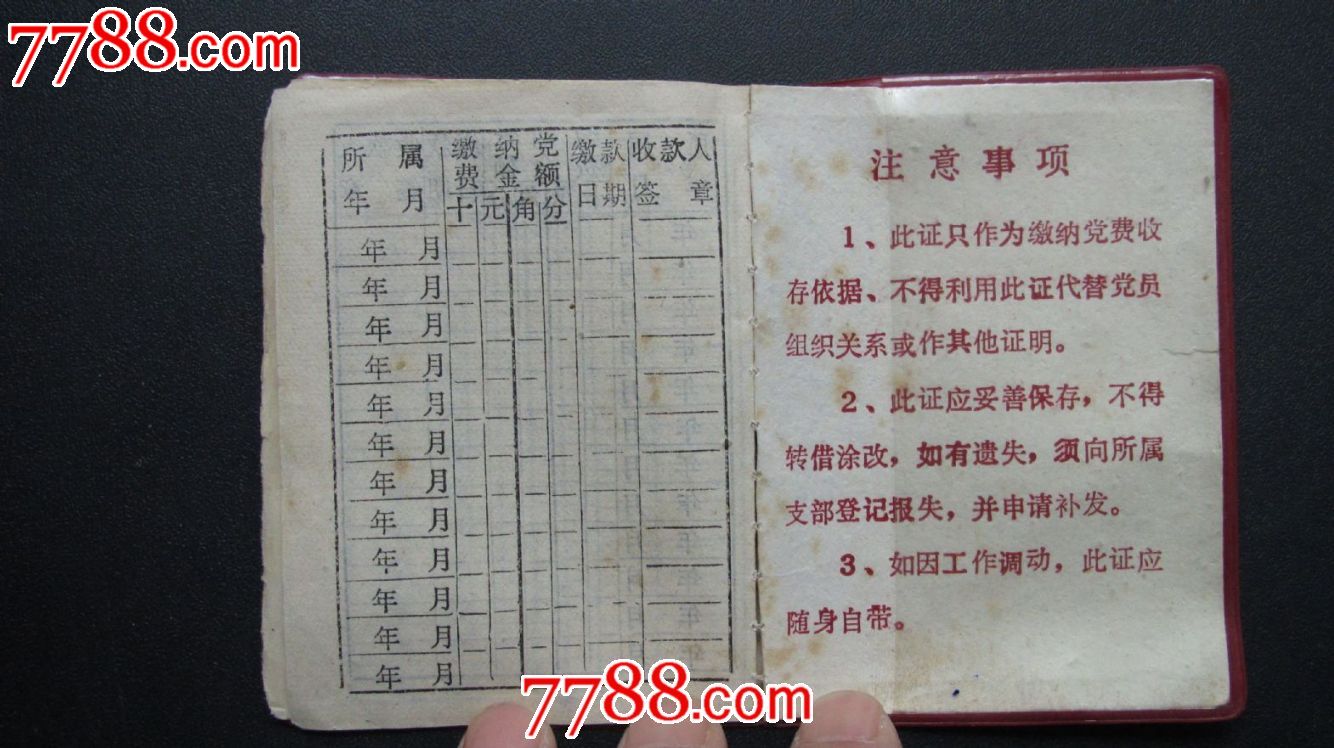 7788.com
所属 缴纳党 缴款 收款人
年月 费金额 日期 签章
十 元 角 分
年 月
年 月
年 月
年 月
年 月
年 月
年 月
年 月
年 月
年 月
年 月
年 月
注意事项
1、此证只作为缴纳党费收
存依据、不得利用此证代替党员
组织关系或作其他证明。
2、此证应妥善保存，不得
转借涂改，如有遗失，须向所属
支部登记报失，并申请补发。
3、如因工作调动，此证应
随身自带。
7788.com
7788.com